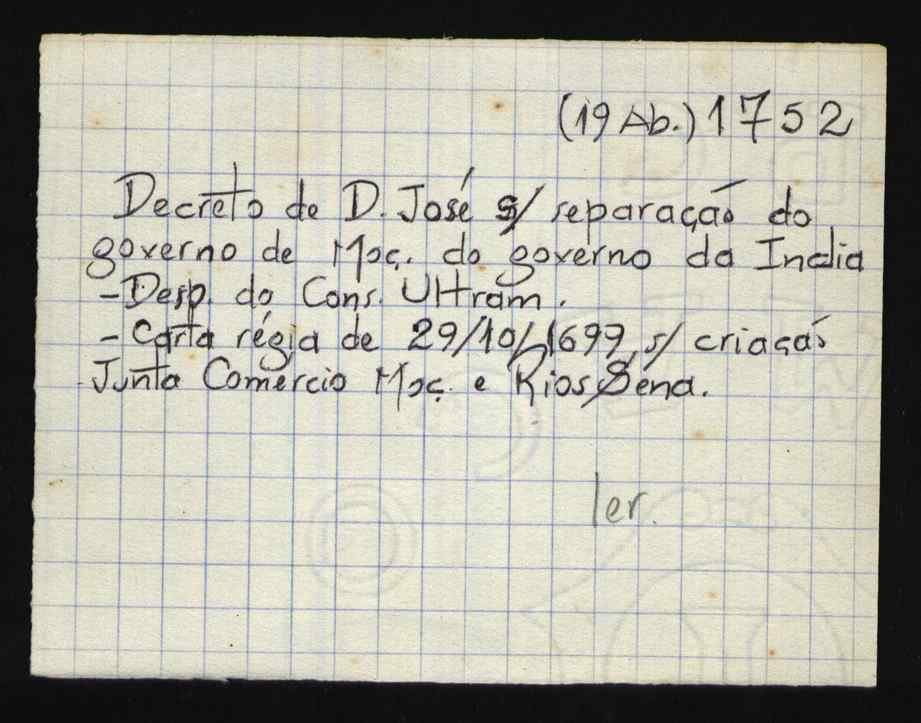 (19 Ab.) 1752
Decreto de D. José s/ separação do
governo de Moç. do governo da India
- Desp. do Cons. Ultram.
- Carta régia de 29/10/1699 s/ criação
Junta Comércio Moç. e Rios Sena.
ler.